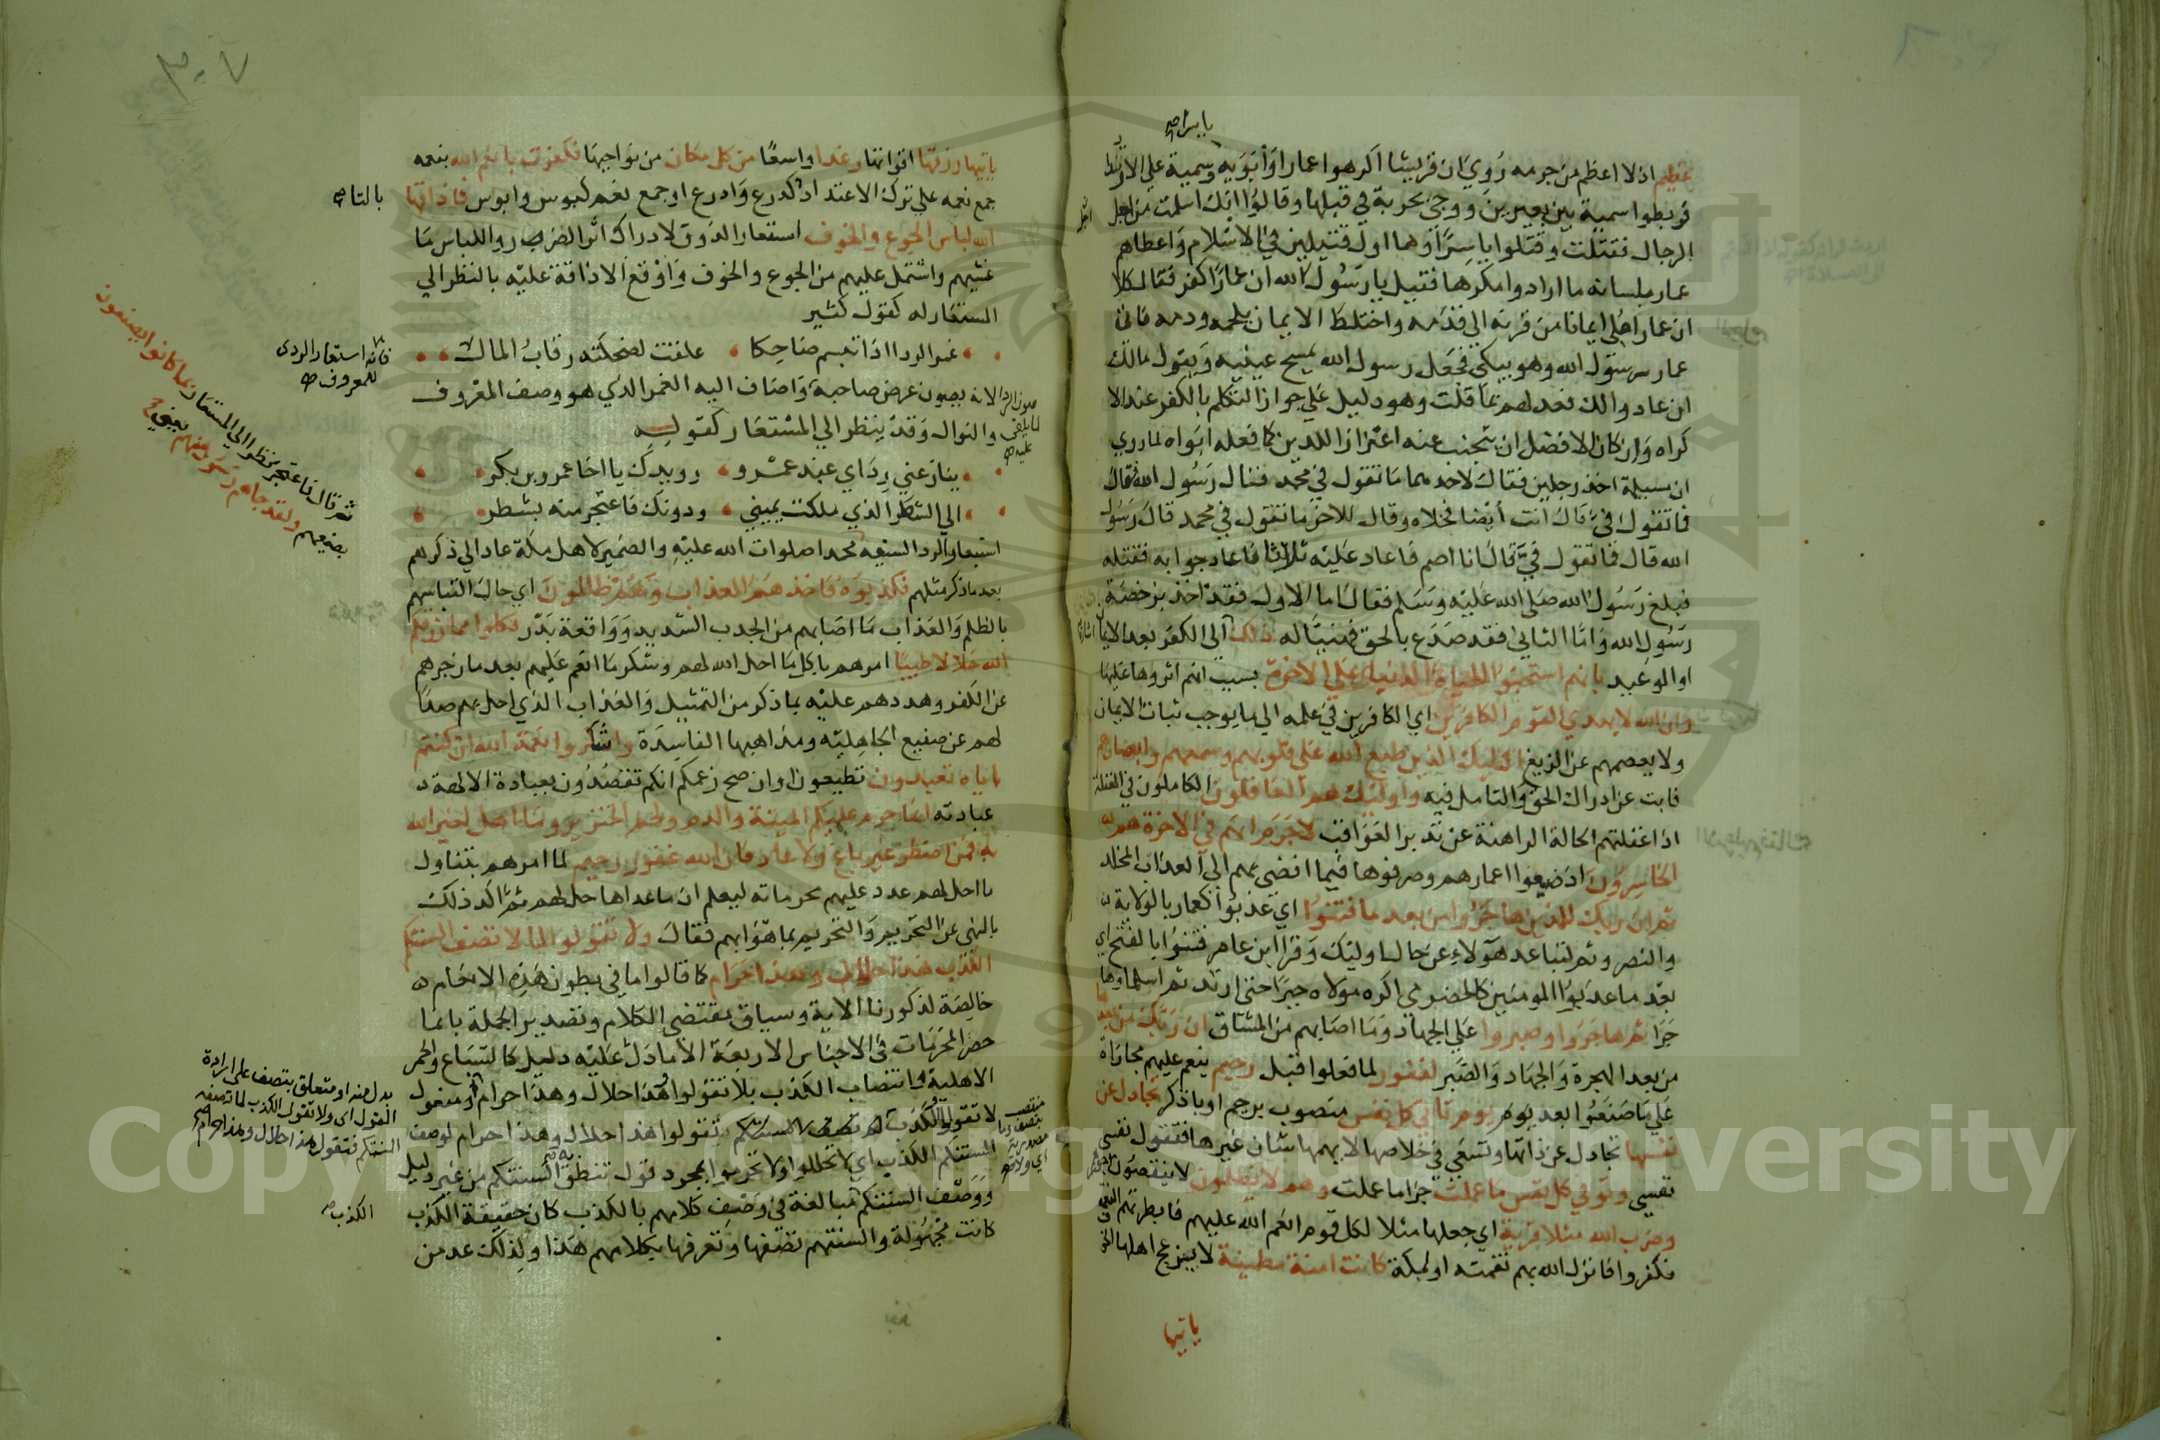 ياسراص
عظيم اذ لا اعظم من جرمه روي ان قريشا اكرهوا عمارا وابويه وسمية علي الارتداد
فربطوا سمية بين بعيرين ووجئ بحربة في قبلها وقالوا انك اسلمت من اجل
الرجال فقتلت وقتلوا ياسرا وهما اول قتيلين في الاسلام واعطاهم
عمار بلسانه ما ارادوا مكرها فقيل يا رسول الله ان عمارا كفر فقال كلا
ان عمارا ملئ ايمانا من قرنه الي قدمه واختلط الايمان بلحمه ودمه فاتي
عمار رسول الله وهو يبكي فجعل رسول الله يمسح عينيه ويقول مالك
ان عادوا لك فعد لهم بما قلت وهو دليل علي جواز التكلم بالكفر عند الا
كراه وان كان الافضل ان يتجنب عنه اعتزازا للدين كما فعله ابواه لما روي
ان مسيلمة اخذ رجلين فقال لاحدهما ما تقول في محمد فقال رسول الله فقال
فما تقول في قال انت ايضا فخلاه وقال للاخر ما تقول في محمد قال رسول
الله قال فما تقول في قال انا اصم فاعاد عليه ثلاثا فاعاد جوابه فقتله
فبلغ رسول الله صلي الله عليه وسلم فقال اما الاول فقد اخذ برخصة
رسول الله واما الثاني فقد صدع بالحق فهنيئا له ذلك الي الكفر بعد الايمان
او الوعيد بانهم استحبوا الحياة الدنيا علي الاخرة بسبب انهم اثروها عليها
وان الله لا يهدي القوم الكافرين اي الكافرين في علمه الي ما يوجب ثبات الايمان
ولا يعصمهم عن الزيغ اولئك الذين طبع الله علي قلوبهم وسمعهم وابصارهم
فابت عن ادراك الحق والتامل فيه واولئك هم الغافلون الكاملون في الغفلة
اذ اغفلتهم الحالة الراهنة عن تدبر العواقب لا جرم انهم في الاخرة هم
الخاسرون اذ ضيعوا اعمارهم وصرفوها فيما افضي بهم الي العذاب المخلد
ثم ان ربك للذين هاجروا من بعد ما فتنوا اي عذبوا كعمار بالولاية
والنصر وثم لتباعد هولاء عن حال اوليك وقرا ابن عامر فتنوا بالفتح اي
بعد ما عذبوا المومنين كالحضرمي اكره مولاه جبرا حتي ارتد ثم اسلما وها
جرا ثم هاجروا وصبروا علي الجهاد وما اصابهم من المشاق ان ربك من بعد
من بعد الهجرة والجهاد والصبر لغفور لما فعلوا قبل رحيم ينعم عليهم مجازاة
علي ما صنعوا بعد يوم تاتي كل نفس منصوب برحيم او باذكر تجادل عن
نفسها تجادل عن ذاتها وتسعي في خلاصها لا يهمها شان غيرها فتقول نفسي
نفسي وتوفي كل نفس ما عملت جزا ما عملت وهم لا يظلمون لا ينقصون
وضرب الله مثلا قرية اي جعلها مثلا لكل قوم انعم الله عليهم فابطرتهم النعمة
فكفروا فانزل الله بهم نقمته او لمكة كانت امنة مطمينة لا يزعج اهلها
ياتيها
٣٠٧
ياتيها رزقها اقواتها رغدا واسعا من كل مكان من نواحيها فكفرت بانعم الله بنعمه
جمع نعمة علي ترك الاعتداد كدرع وادرع او جمع نعم كبوس وابوس فاذاقها
الله لباس الجوع والخوف استعار الذوق لادراك اثر الضرر واللباس ما
غشيهم واشتمل عليهم من الجوع والخوف واوقع الاذاقة عليه بالنظر الي
المستعار له كقول كثير
غمر الردا اذا تبسم ضاحكا علقت لضحكته رقاب المال
لانه يصون عرض صاحبه واضاف اليه الغمر الذي هو وصف المعروف
والنوال وقد ينظر الي المستعار كقوله
ينازعني رداي عبد عمرو رويدك يا اخا عمرو بن بكر
الي الشطر الذي ملكت يميني ودونك فاعتجر منه بشطر
استعار الردا لسيفه محمد اصلوات الله عليه والضمير لاهل مكة عاد الي ذكرهم
بعد ما ذكر مثلهم فكذبوه فاخذهم العذاب وهم ظالمون اي حال التباسهم
بالظلم والعذاب ما اصابهم من الجدب الشديد ووقعة بدر فكلوا مما رزقكم
الله حلالا طيبا امرهم باكل ما احل الله لهم وشكر ما انعم عليهم بعد ما زجرهم
عن الكفر وهددهم عليه بما ذكر من التمثيل والعذاب الذي احل بهم صدا
لهم عن صنيع الجاهلية ومذاهبها الفاسدة واشكروا نعمة الله ان كنتم
اياه تعبدون تطيعون او ان صح زعمكم انكم تقصدون بعبادة الالهة
عبادته انما حرم عليكم الميتة والدم ولحم الخنزير وما اهل لغير الله
به فمن اضطر غير باغ ولا عاد فان الله غفور رحيم لما امرهم بتناول
ما احل لهم عدد عليهم محرماته ليعلم ان ما عداها حل لهم ثم اكد ذلك
بالنهي عن التحريم والتحريم بما هوابهم فقال ولا تقولوا لما لا تصف السنتكم
الكذب هذا حلال وهذا حرام كما قالوا ما في بطون هذه الانعام
خالصة لذكورنا الاية وسياق مقتضي الكلام وتصدير الجملة بانما
حصر المحرمات في الاجناس الاربعة الا ما دل عليه دليل كالسباع والحمر
الاهلية وانتصاب الكذب بلا تقولوا وهذا حلال وهذا حرام او مفعول
لا تقولوا الكذب لم تصف السنتكم فتقولوا هذا حلال وهذا حرام لوصف
السنتكم الكذب اي لا تحللوا ولا تحرموا بمجرد قول تنطق السنتكم من غير دليل
ووصف السنتكم مبالغة في وصف كلامهم بالكذب كان حقيقة الكذب
كانت مجهولة والسنتهم تصفها وتعرفها بكلامهم هذا ولذلك عد من
بالتاص
فانه استعار الردي
للمعروف ص
صون الردا
لما يلقي
عليه ص
ثم قال فاعتجر نظرا الي المستعار بما كانوا يصنعون
بصنيعهم ولقد جاهم رسول منهم يعني
بدل منه او متعلق بتصف علي ارادة
القول اي ولا تقولوا الكذب لما تصفه
السنتكم فتقول هذا حلال وهذا حرام
منتصب
بتصف وما
مصدرية
اي ولا
الكذب ص
Copyright © King Saud University